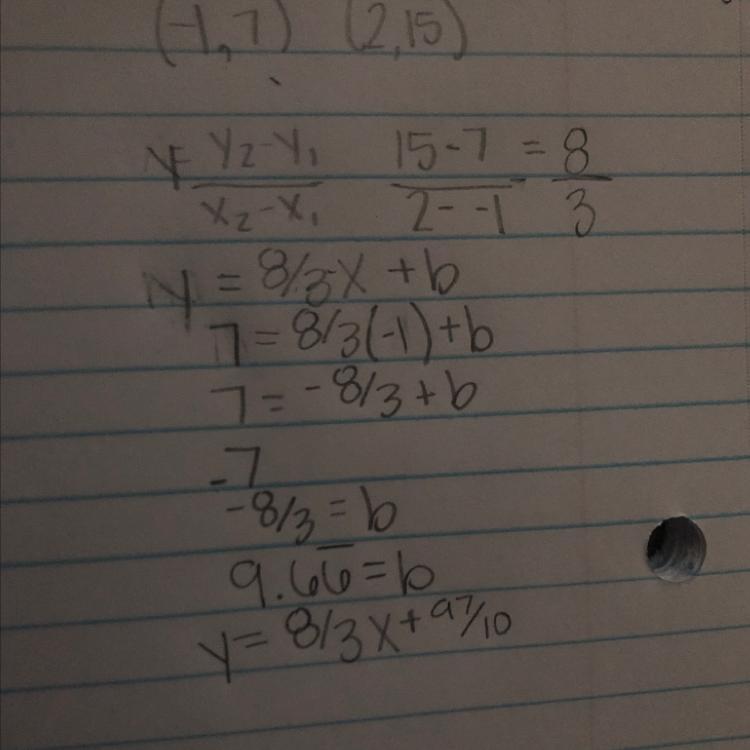 (-1,7) (2,15)
y= y₂-y₁/x₂-x₁ 15-7/2--1 = 8/3
y = 8/3x + b
7 = 8/3(-1)+b
7 = -8/3 + b
-7
-8/3 = b
9.66̅ = b
y = 8/3x + 97/10